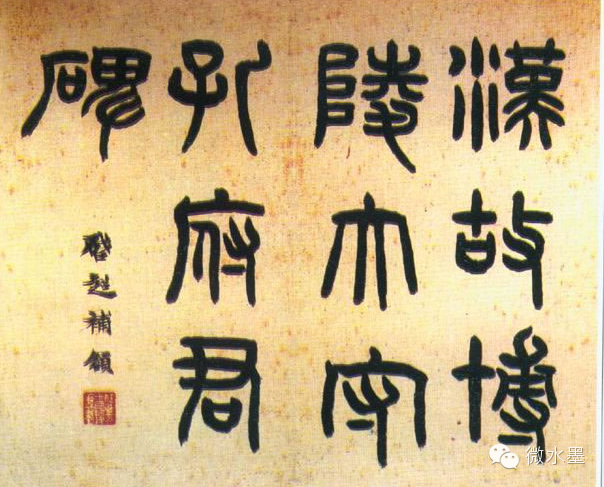 漢故博
陵太守
孔府君
碑
啓超補額
微水墨